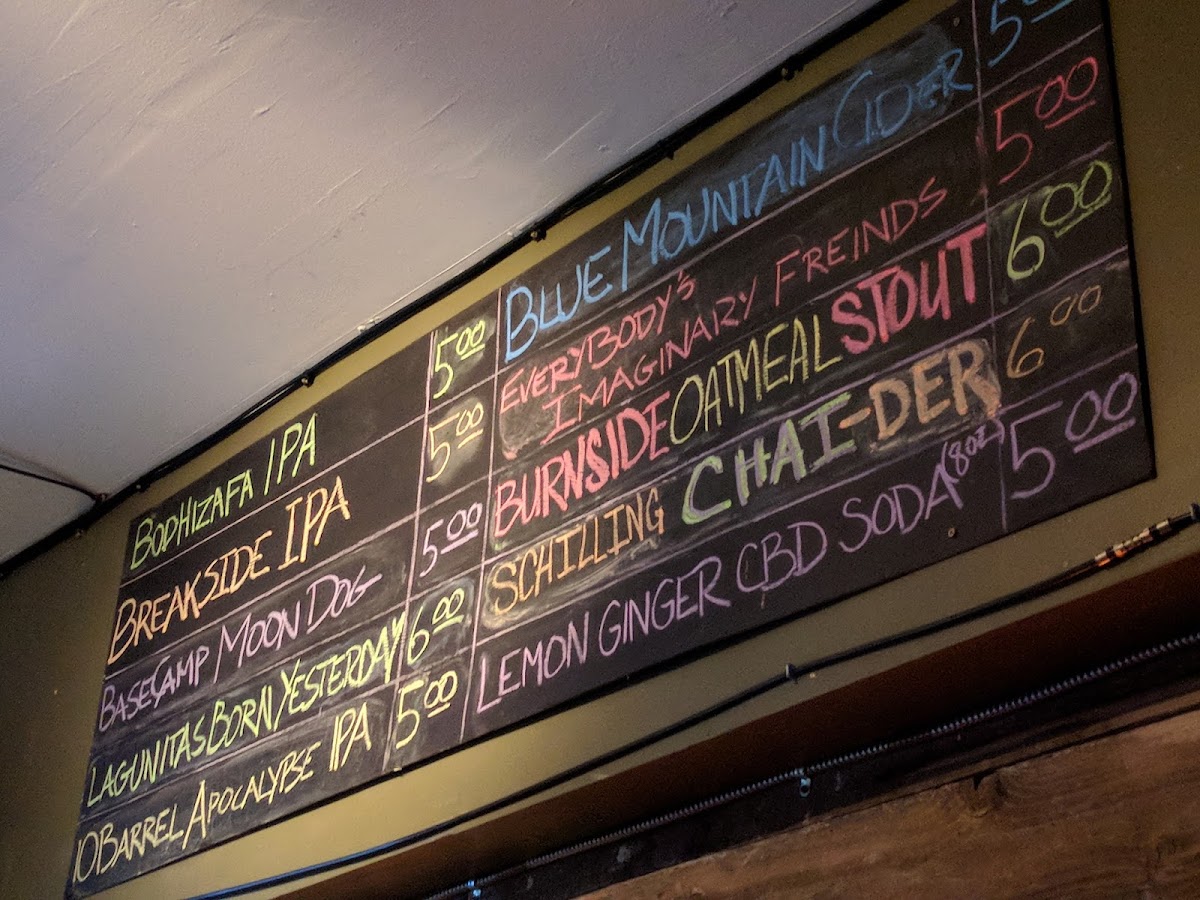 BODHIZAFA IPA 5.00
BREAKSIDE IPA 5.00
BASECAMP MOON DOG 5.00
LAGUNITAS BORN YESTERDAY 6.00
10 BARREL APOCALYPSE IPA 5.00
BLUE MOUNTAIN CIDER 5.00
EVERYBODY'S
IMAGINARY FREINDS 5.00
BURNSIDE OATMEAL STOUT 6.00
SCHILLING CHAI-DER 6.00
LEMON GINGER CBD SODA (8oz) 5.00